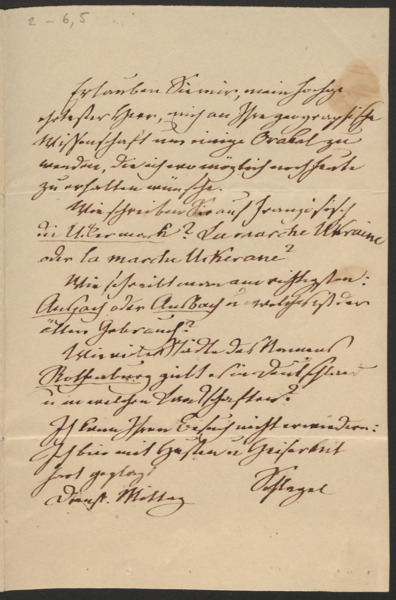 2 – 6,5
Erlauben Sie mir, mein hochge
ehrtester Herr, mich an Ihre geographische
Wissenschaft um einige Orakel zu
wenden, die ich wo möglich noch heute
zu erhalten wünsche.
Wie schreiben Sie auf Französisch
die Ukermark? La marche Ukraine
oder la marche Ukerane?
Wie schreibt man am richtigsten:
Anspach oder Ansbach u welches ist der
ältere Gebrauch?
Wie viele Städte des Namens
Rothenburg giebt es in Deutschland
u in welchen Landschaften?
Ich kann Ihren Besuch nicht erwiedern:
Ich bin mit Husten u Heiserkeit
hart geplagt
Dienst. Mittag Schlegel